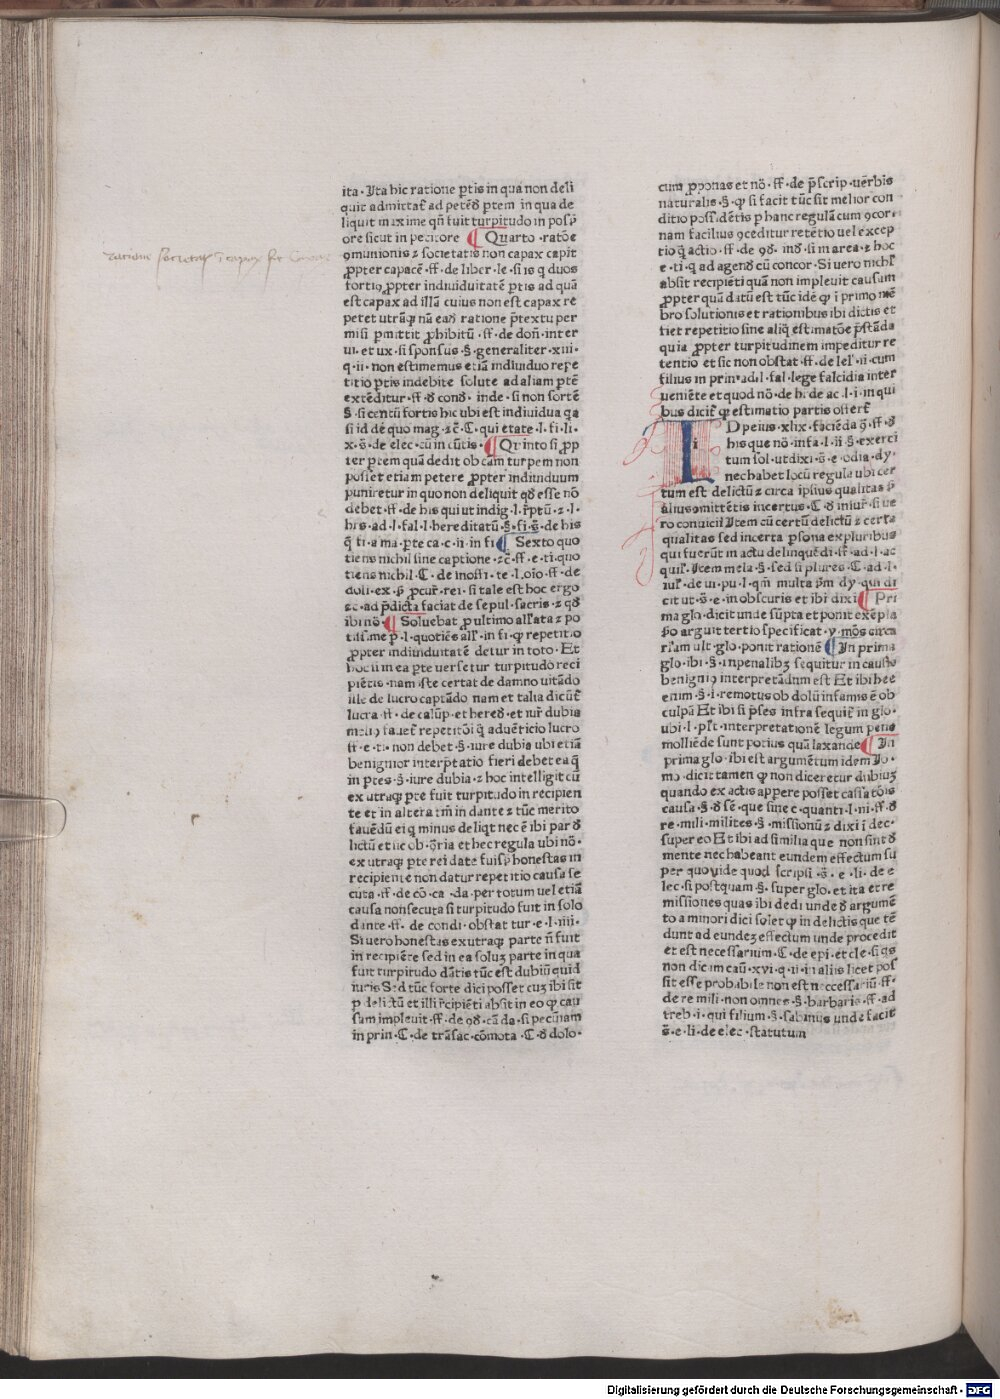 ratione societatis ĩcapax fit Capax
ita · Ita hic ratione ꝑtis in qua non deli
quit admittat᷑ ad petẽđ ꝑtem in qua de
liquit maxime qñ fuit turpitudo in posſ
ore sicut in petitore ¶ Quarto · ratõe
ꝯmunionis ⁊ societatis non capax capit
ꝓpter capacẽ · ff · de liber · le · si is q̃ duos
fortio ꝓpter indiuiduitatẽ ꝑtis ad quã
est capax ad illã cuius non est capax re
petet utrãqꝫ nũ eađ ratione p̃textu per
misi ꝑmittit ꝓhibitũ · ff · de doñ · inter
ui · et ux · si sponsus · § · generaliter · xiii ·
q · ii · non estimemus etiã indiuiduo repe
titio ꝑtis indebite solute ad aliam ptẽ
extẽditur · ff · đ conđ · inde · si non sortẽ
§ · si centũ fortis hic ubi est indiuidua qa
si id dẽ quo mag · ⁊c̃ · C · qui etate · l · fi · li ·
x · s̃ · de elec · cũ in cũtis · ¶ Quinto si ꝓp
ter ꝑtem quã dedit ob cãm turpem non
posset etiam petere ꝓpter indiuiduum
puniretur in quo non deliquit qđ esse nõ
debet · ff · de his qui ut indig · l · r̃ptũ · ⁊ · l ·
hrs · ad · l · fal · l · hereditatũ · § · fi · s̃ · de his
q̃ fi · a ma · ꝑte ca · c · ii · in fi ¶ Sexto quo
tiens nichil sine captione · ⁊c̃ · ff · e · ti · quo
tiens nichil · C · de inoffi · te · l · oĩo · ff · de
doli · ex · p̃ · ꝓcur̃ · rei · si tale est hoc ergo
⁊c · ad p̃dicta faciat de sepul · sacris · ⁊ qđ
ibi nõ · ¶ Soluebat ꝓ ultimo allata ⁊ po
tissime p̃ · l · quotiẽs all᷑ · in fi · ꝙ repetitio
ꝓpter indiuiduitatẽ detur in toto · Et
hoc ii in ea ꝑte versetur turpitudo reci
piẽtis · nam iste certat de damno uitãdo
ille de lucro captãdo nam et talia dicũt᷑
lucra · ff · de calũp · et heređ · et iur̃ dubia
melio fauet᷑ repetitõi q̃ aduẽticio lucro
ff · e · ti · non debet · § · iure dubia ubi etiã
benignior interp̃tatio fieri debet ea q̃
in pres · § · iure dubia · ⁊ hoc intelligit cũ
ex utraqꝫ pte fuit turpitudo in recipien
te et in altera tm̃ in dante ⁊ tũc merito
fauẽdũ ei ꝙ minus deliqt nec ẽ ibi par đ
lictũ et iic ob · õria et hec regula ubi nõ ·
ex utraqꝫ pte rei date fuisꝫ honestas in
recipiente non datur repetitio causa se
cuta · ff · de cõ · ca · da · per totum uel etiã
causa non secuta si turpitudo fuit in solo
dante · ff · de condi · obstat tur · e · l · iiii ·
Si uero honestas ex utraqꝫ parte ñ fuit
in recipiẽte sed in ea soluꝫ parte in qua
fuit turpitudo dãtis tũc est dubiũ quid
iuris Sed tũc forte dici posset cuꝫ ibi sit
ꝑ delictũ et illi r̃cipiẽti absit in eo ꝙ cau
sam impleuit · ff · de ꝯđ · cã da · si pecuniam
in prin · C · de trãsac · cõmota · C · đ dolo ·
cum ꝓponas et nõ · ff · de p̃scrip · uẽrbis
naturalis · § · ꝙ si facit tũc sit melior con
ditio possidẽtis ꝓ hanc regulã cum ꝯcor ·
nam facilius ꝯceditur retẽtio uel excep
tio q̃ actio · ff · de ꝯđ · inđ · si in area · ⁊ hoc
e · ti · q ad agenđ cũ concor · Si uero nichł
absit recipiẽti quã non impleuit causam
ꝓpter quã datũ est tũc idẽ ꝙ i primo mẽ
bro solutionis et rationibus ibi dictis et
fiet repetitio sine aliq̃ estimatõe p̃stãda
quia ꝓpter turpitudinem impeditur re
tentio et sic non obstat · ff · de lel᷑ · ii · cum
filius in prin᷑ adił · fal · lege falcidia inter
ueniẽte et quod nõ · de hr̃de ac · l · i · in qui
bus dicit᷑ ꝙ estimatio partis offert᷑
I
D peius · xlix · faciẽda q̃ · ff · đ
i his que nõ · infa · l · ii · § · exerci
tum sol · ut dixi · s̃ · e · odia · dy ·
nec habet locũ regula ubi cer
tum est delictũ ⁊ circa ipsius qualitas ꝑ
alius omittẽtis incertus · C · đ iniur̃ · si ue
ro conuicii Item cũ certũ delictũ ⁊ certa
qualitas sed incerta ꝑsona ex pluribus
qui fuerũt in actu delinquẽdi · ff · ad · l · ac
quil᷑ · Item mela · § · sed si plures · C · ad · l ·
iul᷑ · de ui · pu · l · qm̃ multa p̃m dy · qui di
cit ut · s̃ · e · in obscuris et ibi dixi ¶ Pri
ma glo · dicit unde sũpta et ponit exẽpla
p̃o arguit tertio specificat · y · mõs circa
r̃iam ult · glo · ponit rationẽ ¶ In prima
glo · ibi · § · in penalibꝫ sequitur in causis
benignio interpretãdum est Et ibi hee
enim · § · i · remotus ob dolũ infamis ẽ ob
culpã Et ibi si pr̃ses infra sequit᷑ in glo ·
ubi · l · pl᷑t · interpretationẽ legum pene
molliẽde sunt potius quã laxande ¶ In
prima glo · ibi est argumẽtum idem Io ·
mo · dicit tamen ꝙ non diceretur dubiuꝫ
quando ex actis appere posset cassatõis
causa · § · đ sẽ · que sine c · quanti · l · ni · ff · đ
re · mili · milites · § · missionũ ⁊ dixi i dec ·
super eo Et ibi ad similia que non sint đ
mente nec habeant eundem effectum su
per quo uide quod scripsi · s̃ · e · li · de e
lec · si postquam · § · super glo · et ita et re
missiones quas ibi dedi unde đ argumẽ
to a minori dici solet ꝙ in delictis que tẽ
dunt ad eundeꝫ effectum unde procedit
et est necessarium · C · de epi · et cle · si qs
non dicam cau᷑ · xvi · q · ii · in aliis licet pos
sit esse probabile non est neccessariũ · ff ·
de re mili · non omnes · § · barbaris · ff · ad
treb · i · qui filium · § · sabinus unde facit
s̃ · e · li · de elec · statutum
Digitalisierung gefördert durch die Deutsche Forschungsgemeinschaft - DFG